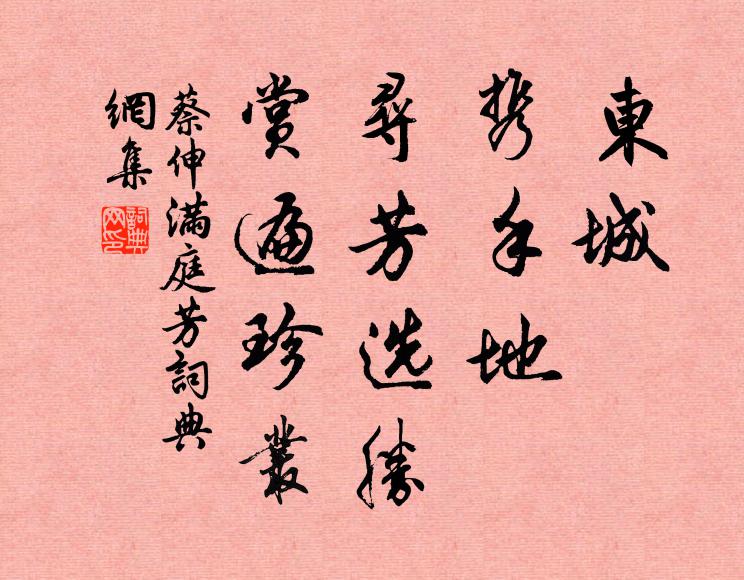 東城
携手地
尋芳选勝
賞遍珍叢
蔡伸滿庭芳詞典
網集
詞典网印